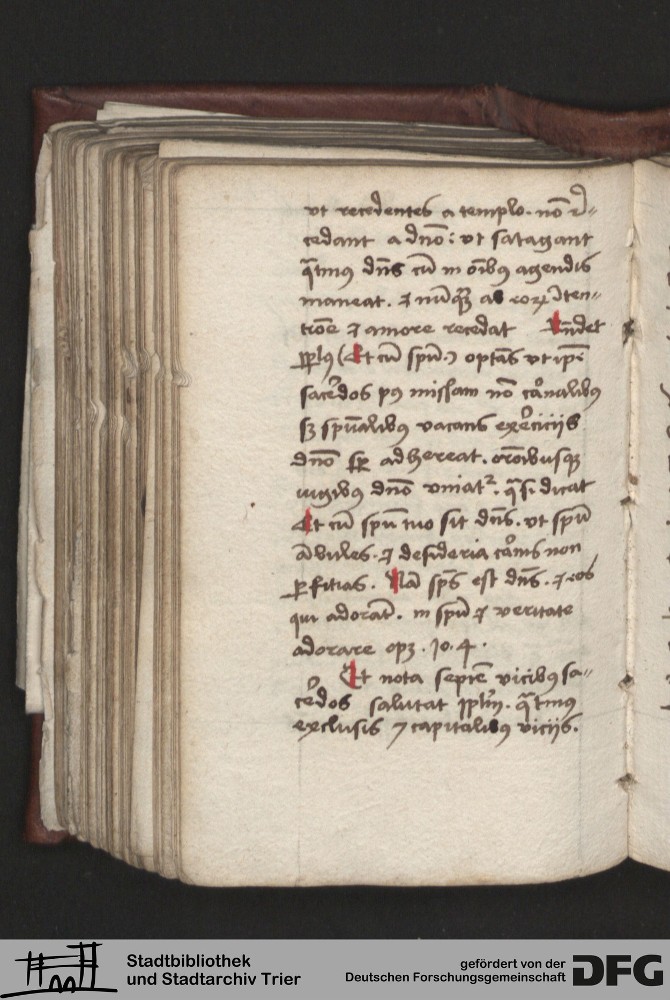 vt recedentes a templo. nō re⸗
cedant a dn̄o: vt satagant
q̄tinus dn̄s cū in oībus agendis
maneat. ⁊ nūqꝫ ab eoꝝ īten⸗
tiōe ⁊ amore recedat Vn̄det
pp̄lus Et cū spū. optās vt ipē
sacerdos pꝰ missam nō carnalibꝰ
sꝫ spūalibꝰ vacans exerciciis
dn̄o sꝑ adhereat. orōnibusqꝫ
iugibꝰ dn̄o vniatʳ. q̄si dicat
Et cū spū tuo sit dn̄s. vt spū
ābules. ⁊ desideria carnis non
ꝑficias. Nā spūs est dn̄s. ⁊ eos
qui adorāt. in spū ⁊ veritate
adorare opꝫ. Jo. 4.
Et nota septē vicibꝰ sa⸗
cerdos salutat pplm̄. q̄tinus
exclusis 7 capitalibꝰ viciis.
Stadtbibliothek
und Stadtarchiv Trier
gefördert von der
Deutschen Forschungsgemeinschaft
DFG